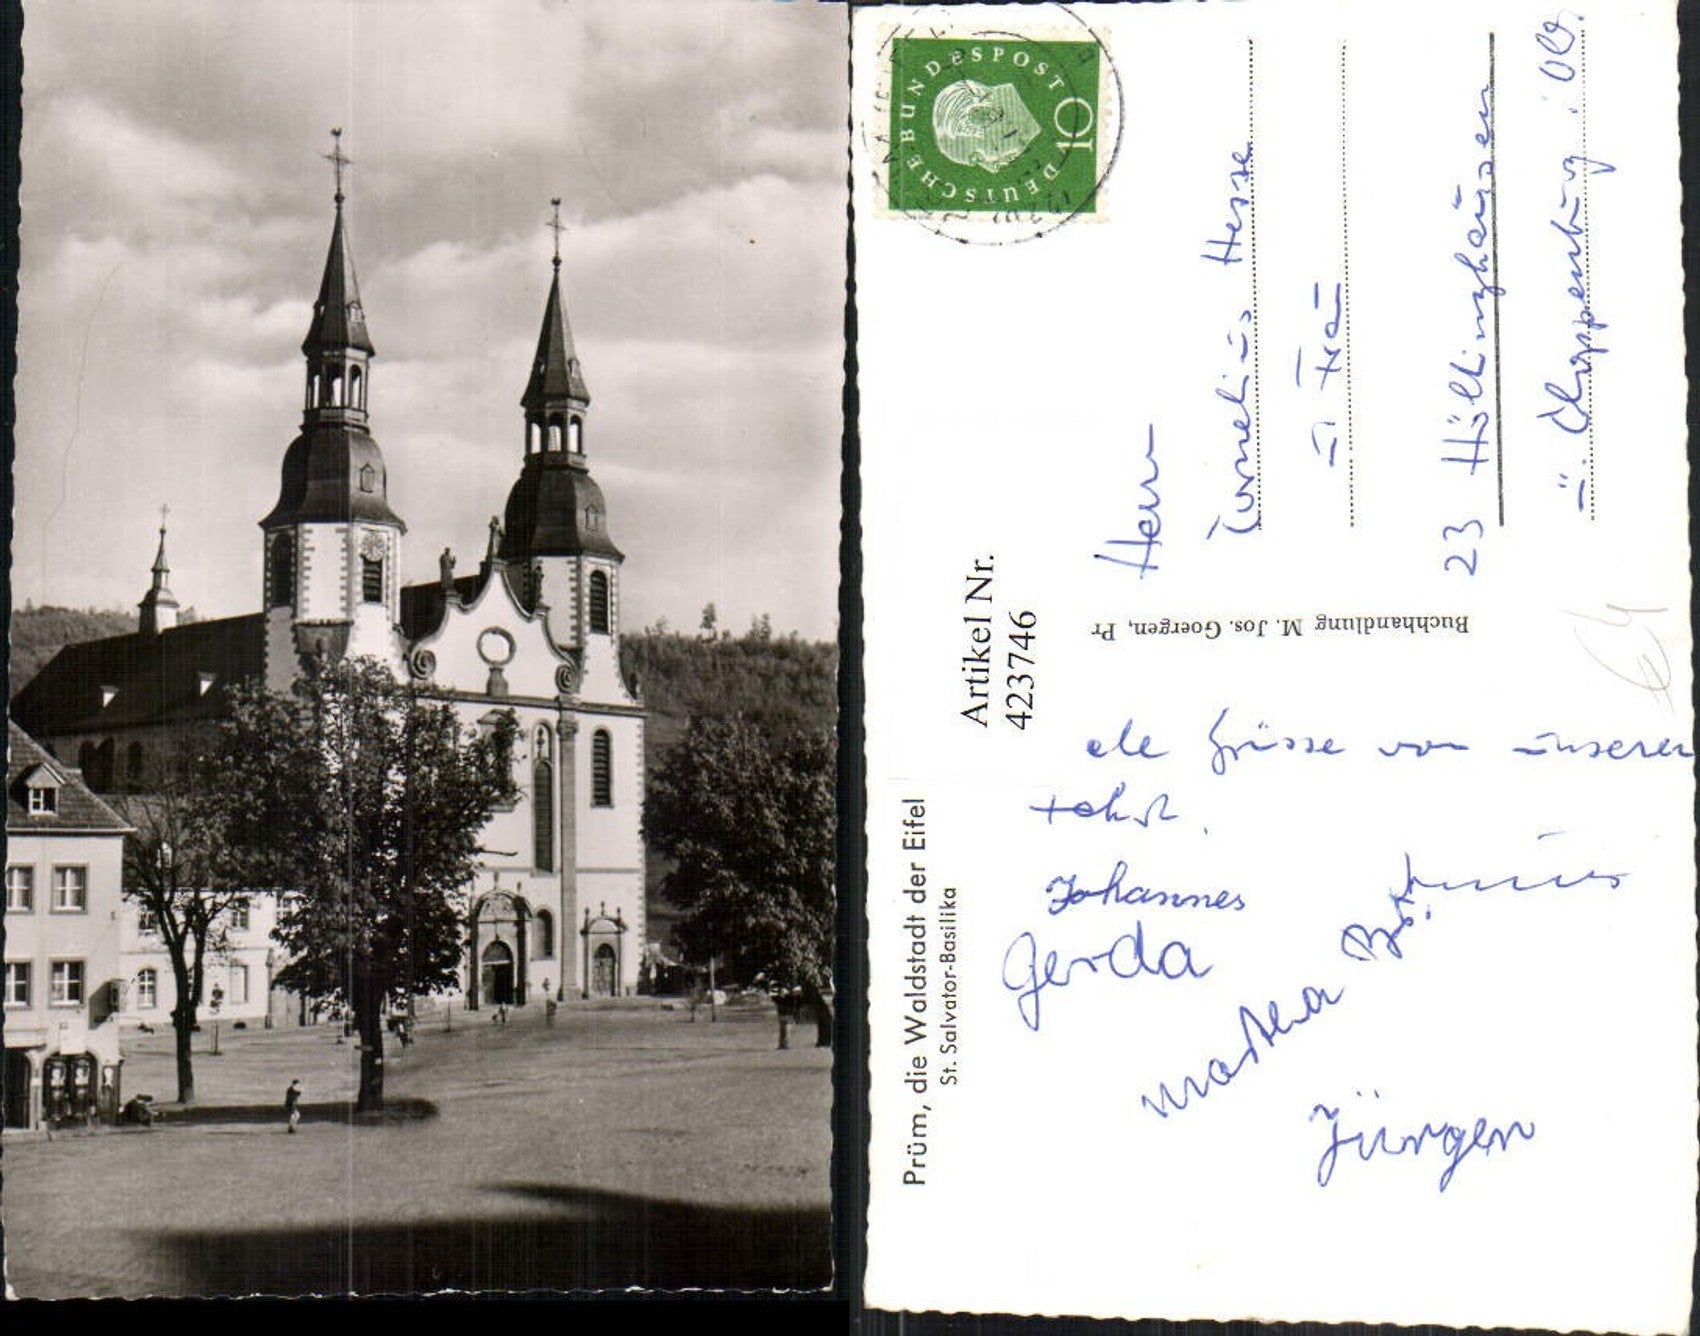 DEUTSCHE BUNDESPOST
10
Artikel Nr.
423746
Prüm, die Waldstadt der Eifel
St. Salvator-Basilika
Buchhandlung M. Jos. Goergen, Pr
ele Grüsse von unserer
Johannes
Gerda
Martha
Jürgen
Herrn
Cornelius Hesse
u Frau
23 Höltinghausen
ü. Cloppenburg i. Old.